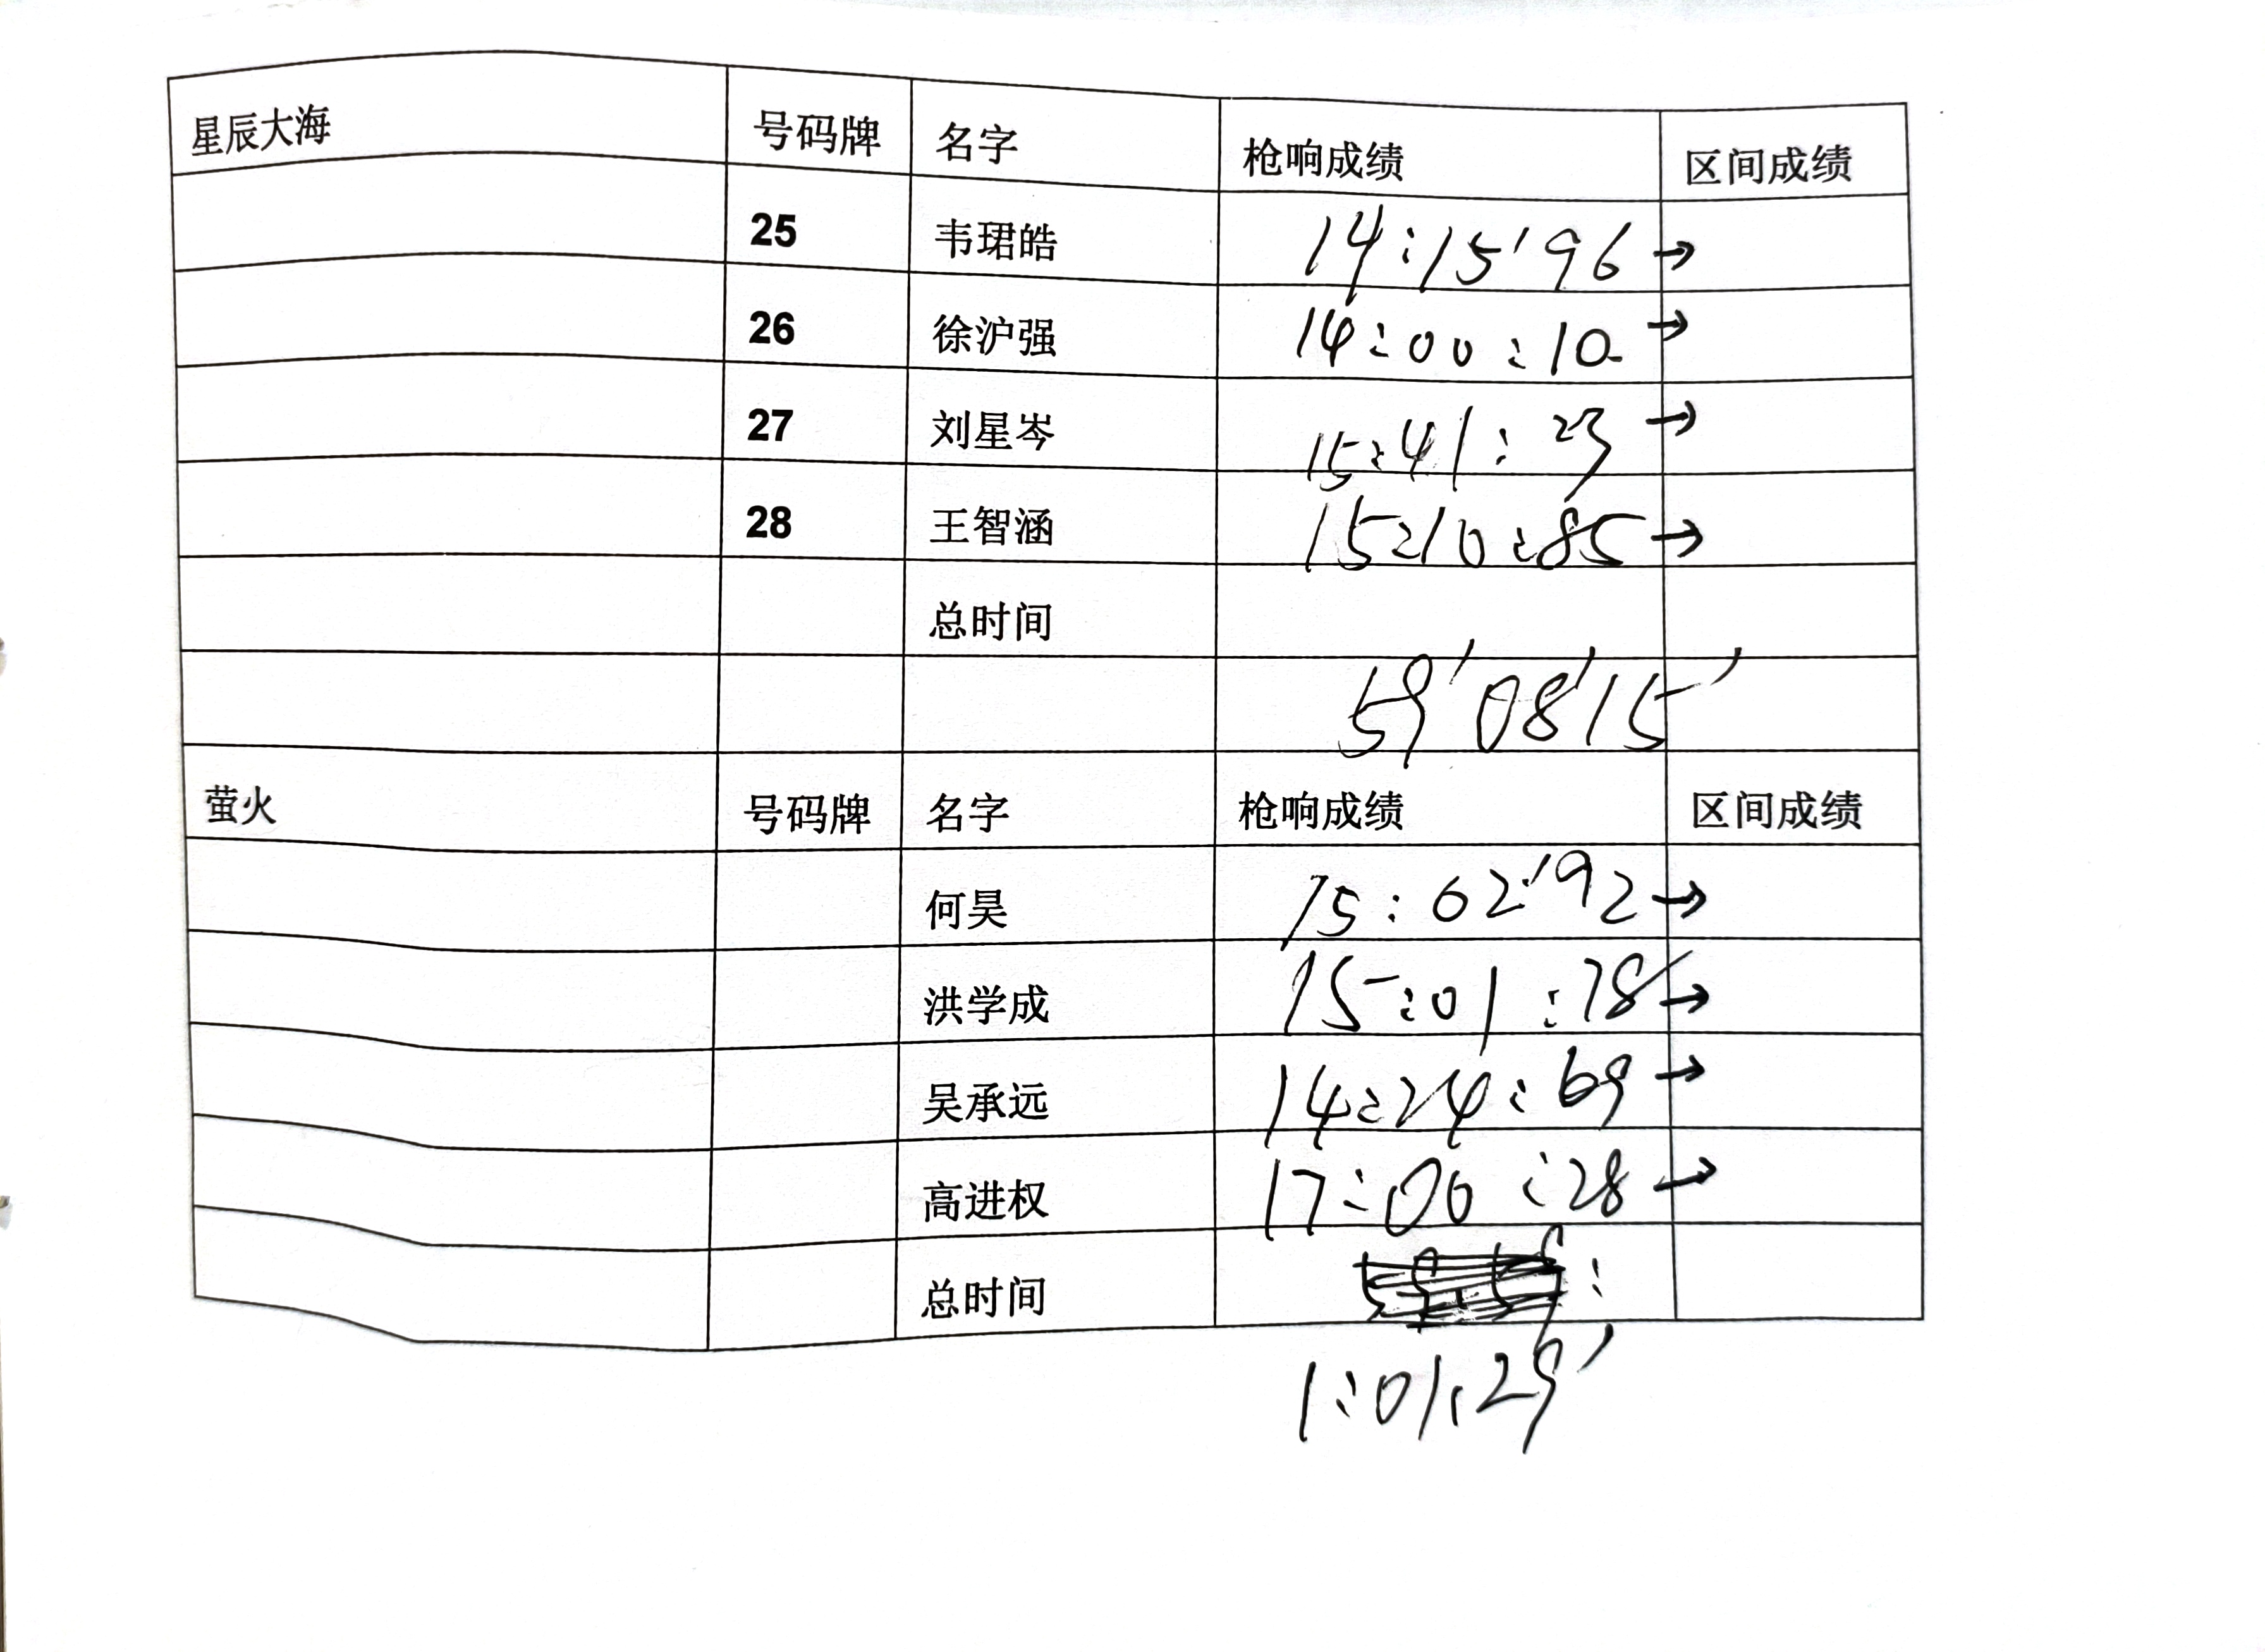 星辰大海 号码牌 名字 枪响成绩 区间成绩
25 韦珺皓 14:15'96 →
26 徐沪强 14:00:10 →
27 刘星岑 15:41:23 →
28 王智涵 15:10:85 →
总时间
59'08'15'
萤火 号码牌 名字 枪响成绩 区间成绩
何昊 15:02:'92 →
洪学成 15:01:78 →
吴承远 14:24:69 →
高进权 17:00:28 →
总时间 :
1:01:29'